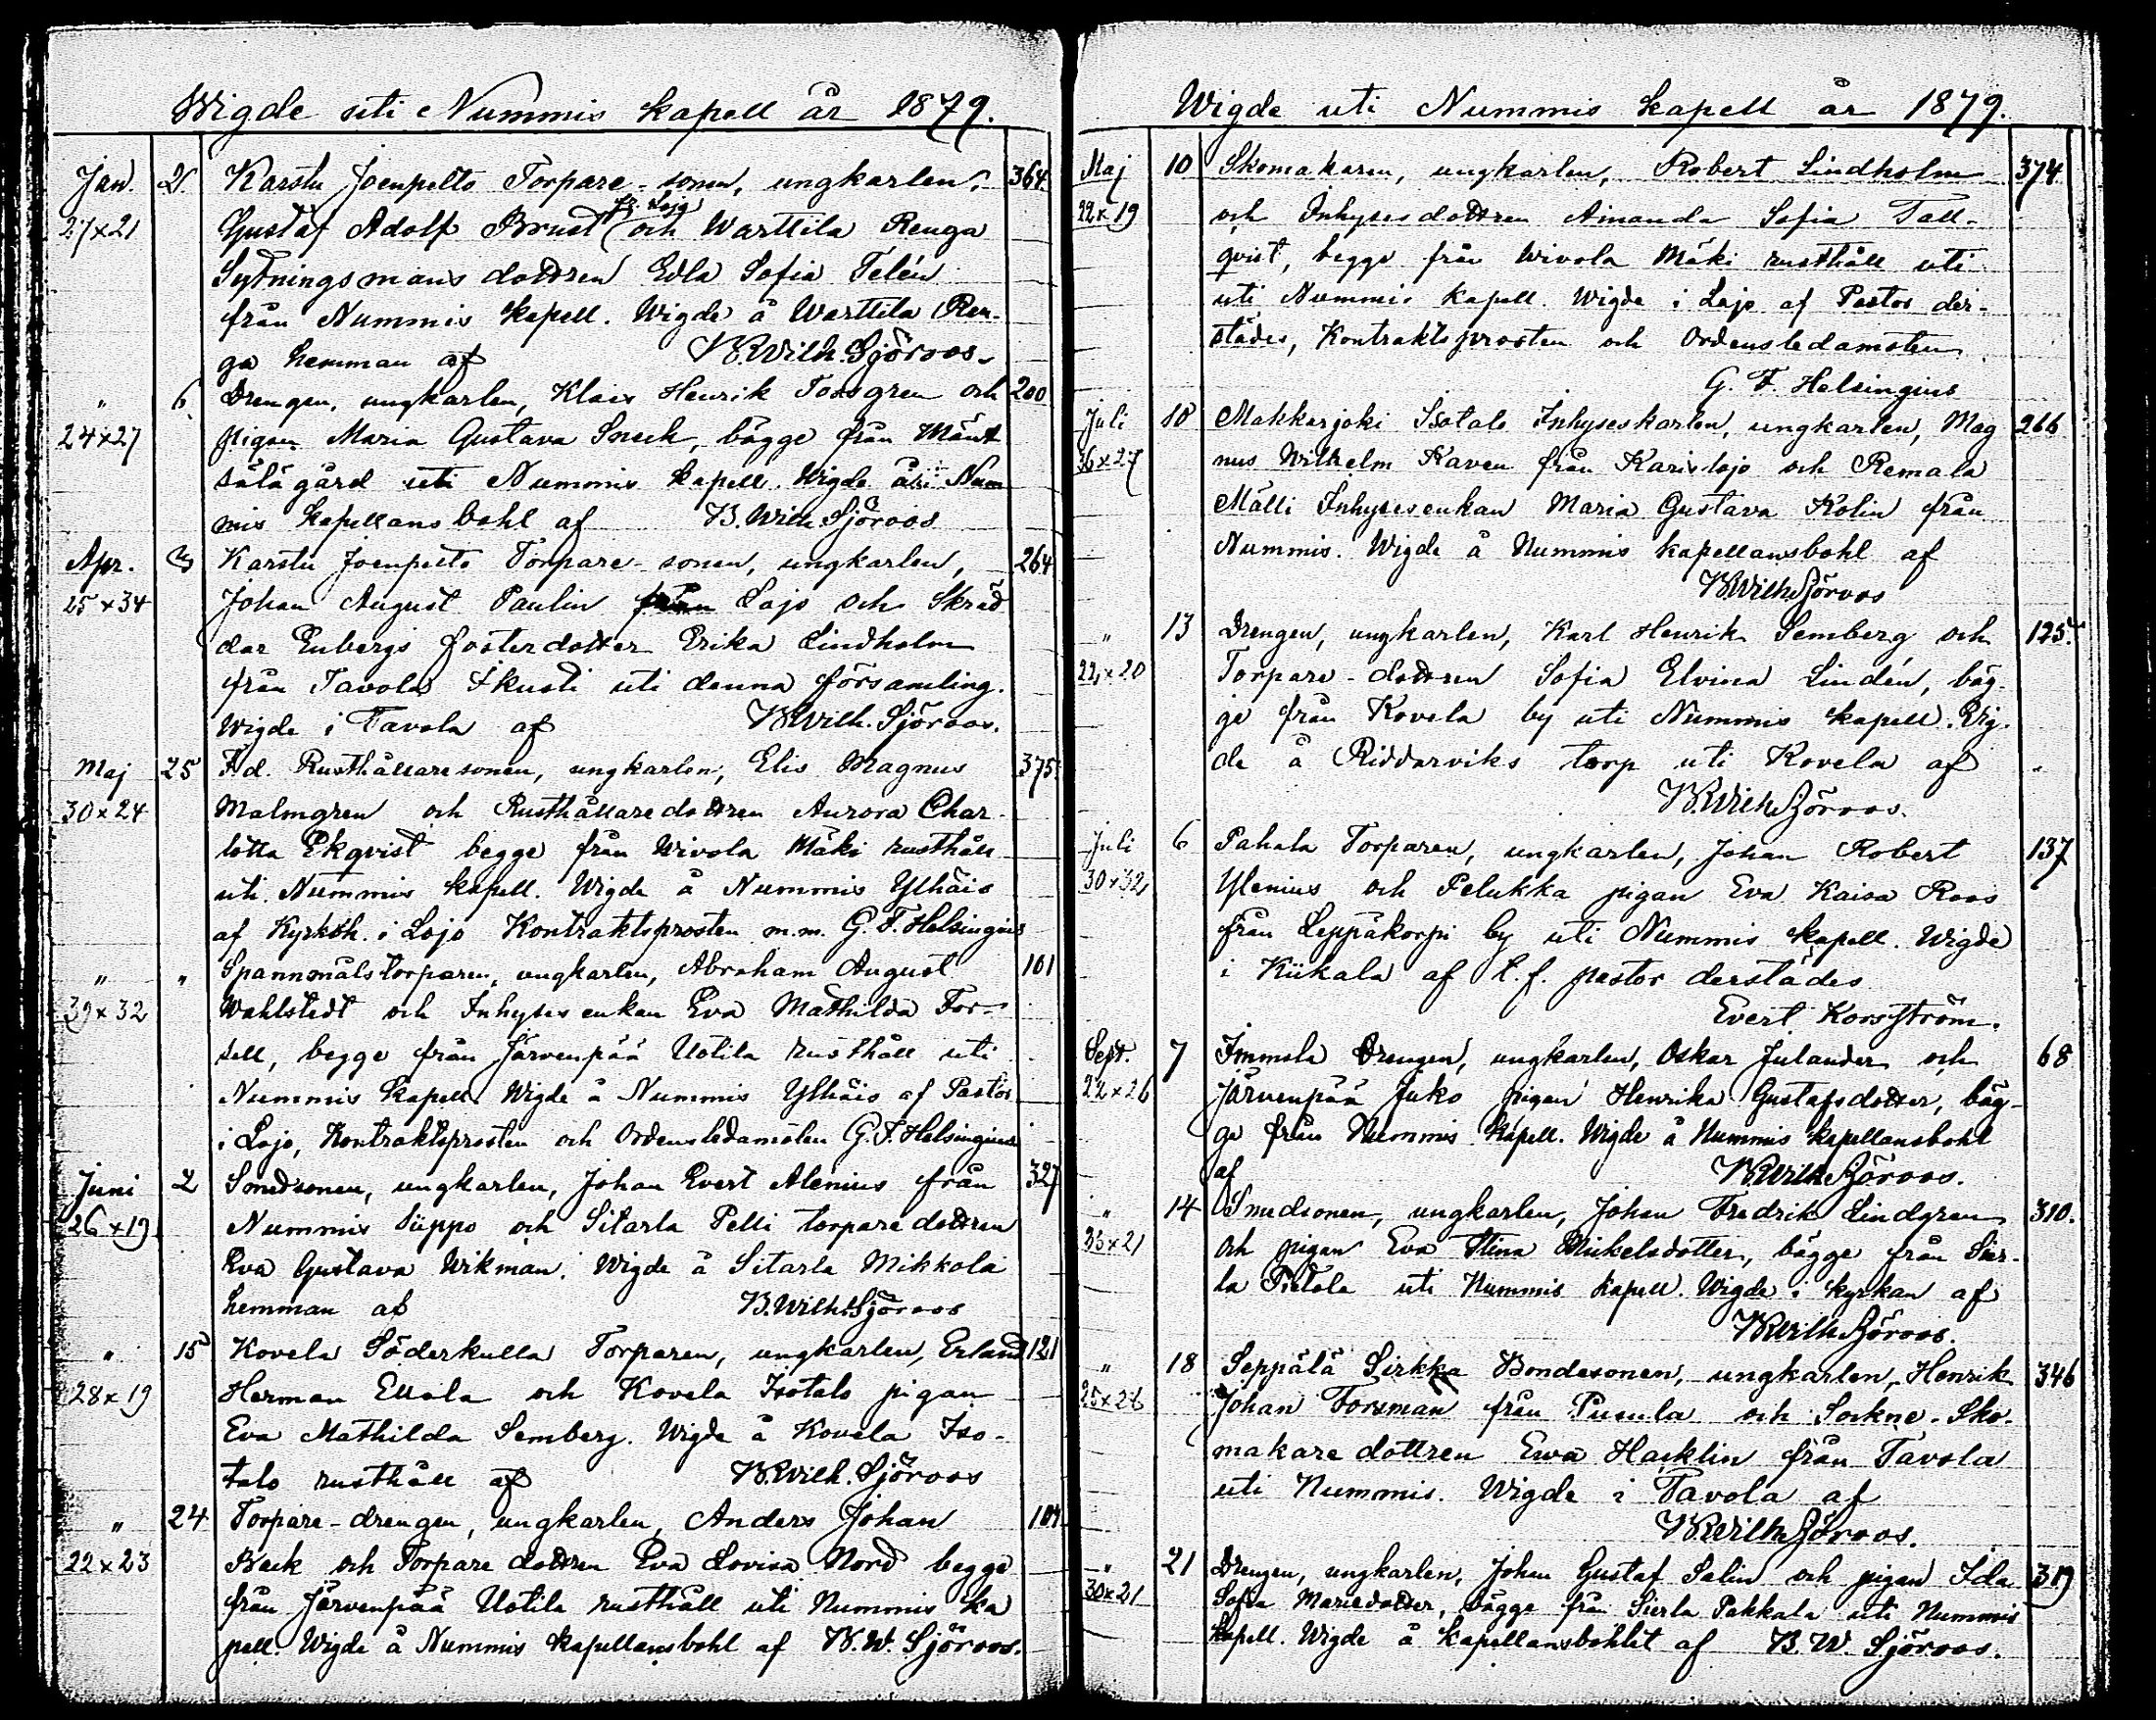 Wigde uti Nummis kapell år 1879.
Jan. 2. Karstu Joenpelto Torpare-sonen, ungkarlen, 364
fr. Lojo
27x21 Gustaf Adolf Brust och Warttila Renga
Sytningsmans dottren Edla Sofia Telén
från Nummis kapell. Wigde å Warttila Ren-
ga hemman af B. Wilh. Sjöroos.
" 6. Drengen, ungkarlen, Klais Henrik Forsgren och 200
24x27 pigan Maria Gustava Sneck, bägge från Mänt
sälä gård uti Nummis kapell. Wigde å Num
mis kapellansbohl af B. Wilh. Sjöroos
Apr. 3 Karstu Joenpelto Torpare-sonen, ungkarlen, 264
25x34 Johan August Paulin från Lojo och Skräd
dar Enbergs fosterdotter Erika Lindholm
från Tavola Skusti uti denna församling.
Wigde i Tavola af B. Wilh. Sjöroos.
Maj 25 F.d. Rusthållaresonen, ungkarlen, Elis Magnus 375
30x24 Malmgren och Rusthållaredottren Aurora Char-
lotta Ekqvist begge från Wivola Mäki rusthåll
uti Nummis kapell. Wigde å Nummis Ylhäis
af Kyrkoh. i Lojo Kontraktsprosten m.m. G. F. Helsingius
" " Spannmålstorparen, ungkarlen, Abraham August 101
39x32 Wahlstedt och Inhyses enkan Eva Mathilda For-
sell, begge från Järvenpää Uotila rusthåll uti
Nummis kapell. Wigde å Nummis Ylhäis af Pastor
i Lojo, Kontraktsprosten och Ordensledamoten G. F. Helsingius
Juni 2 Smedsonen, ungkarlen, Johan Evert Alenius från 327
26x19 Nummis Siippo och Sitarla Pelli torpare dottren
Eva Gustava Wikman. Wigde å Sitarla Mikkola
hemman af B. Wilh. Sjöroos
" 15 Kovela Söderkulla Torparen, ungkarlen, Erland 121
28x19 Herman Ellala och Kovela Isotalo pigan
Eva Mathilda Semberg. Wigde å Kovela Iso-
talo rusthåll af B. Wilh. Sjöroos
" 24 Torpare-drengen, ungkarlen, Anders Johan 104
22x23 Beck och Torpare dottren Eva Lovisa Nord begge
från Järvenpää Uotila rusthåll uti Nummis ka
pell. Wigde å Nummis kapellansbohl af B. W. Sjöroos.
Wigde uti Nummis kapell år 1879.
Maj 10 Skomakaren, ungkarlen, Robert Lindholm 374
22x19 och Inhysesdottren Amanda Sofia Tall-
qvist, begge från Wivola Mäki rusthåll uti
uti Nummis kapell. Wigde i Lojo af Pastor der-
städes, Kontraktsprosten och Ordensledamoten
G. F. Helsingius
Juli 10 Makkarjoki Isotalo Inhyseskarlen, ungkarlen, Mag 266
36x27 nus Wilhelm Kaven från Karislojo och Remala
Mälli Inhysesenkan Maria Gustava Kolin från
Nummis. Wigde å Nummis kapellansbohl af
B. Wilh Sjöroos
" 13 Drengen, ungkarlen, Karl Henrik Semberg och 125.
22x20 Torpare-dottren Sofia Elvina Lindén, bäg-
ge från Kovela by uti Nummis kapell. Wig-
de å Riddarviks torp uti Kovela af
B. Wilh Sjöroos.
Juli 6 Pahala Torparen, ungkarlen, Johan Robert 137
30x32 Ylenius och Pelukka pigan Eva Kaisa Roos
från Leppäkorpi by uti Nummis kapell. Wigde
i Kiikala af t.f. pastor derstädes
Evert Korsström.
Sept. 7 Immola Drengen, ungkarlen, Oskar Julander och 68
22x26 Järvenpää Juko pigan Henrika Gustafsdotter, bäg-
ge från Nummis kapell. Wigde å Nummis kapellansbohl
af B. Wilh Sjöroos.
" 14 Smedsonen, ungkarlen, Johan Fredrik Lindgren 310.
33x21 och pigan Eva Stina Mickelsdotter, bägge från Sier-
la Pietola uti Nummis kapell. Wigde i kyrkan af
B. Wilh Sjöroos.
" 18 Seppälä Sirkka Bondesonen, ungkarlen, Henrik 346
25x26 Johan Forsman från Pusula och Sockne-Sko-
makare dottren Ewa Hacklin från Tavola
uti Nummis. Wigde i Tavola af
B. Wilh Sjöroos.
" 21 Drengen, ungkarlen, Johan Gustaf Salin och pigan Ida 319
30x21 Sofia Mariedotter, bägge från Sierla Pakkala uti Nummis
kapell. Wigde å kapellansbohlet af B. W. Sjöroos.